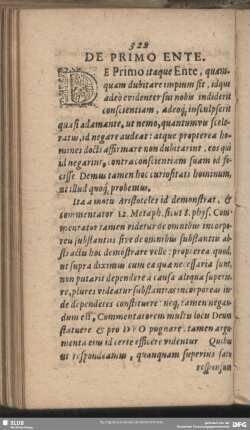 328
DE PRIMO ENTE.
DE Primo itaque Ente, quan-
quam dubitare impium sit, idque
adeò evidenter sui nobis indiderit
conscientiam, adeoq́; insculpserit
quasi adamante, ut nemo, quantumvis scele-
ratus, id negare audeat: atque propterea ho-
mines docti affirmare non dubitarint, eos qui
id negarint, contra conscientiam suam id fe-
cisse Demus tamen hoc curiositati hominum,
ut illud quoq́; probemus.
Ita a motu Aristoteles id demonstrat, &
commentator 12. Metaph. sicut 8. phys. Com-
mentator tamen videtur de omnibus incorpo-
reis substantiis sive de omnibus substantiis ab-
stractis hoc demonstrare velle: propterea quod,
ut supra diximus cum ea quæ necessaria sunt,
non putaris dependere à causa aliqua superio-
re, plures videatur substantias incorporeas in-
de dependentes constituere neq́; tamen negan-
dum est, Commentatorem multis locis Deum
statuere & pro DEO pugnare: tamen argu-
menta eius id certè efficere videntur Quibus
ut respondeamus, quanquam superius satis
responsum
SLUB
DFG